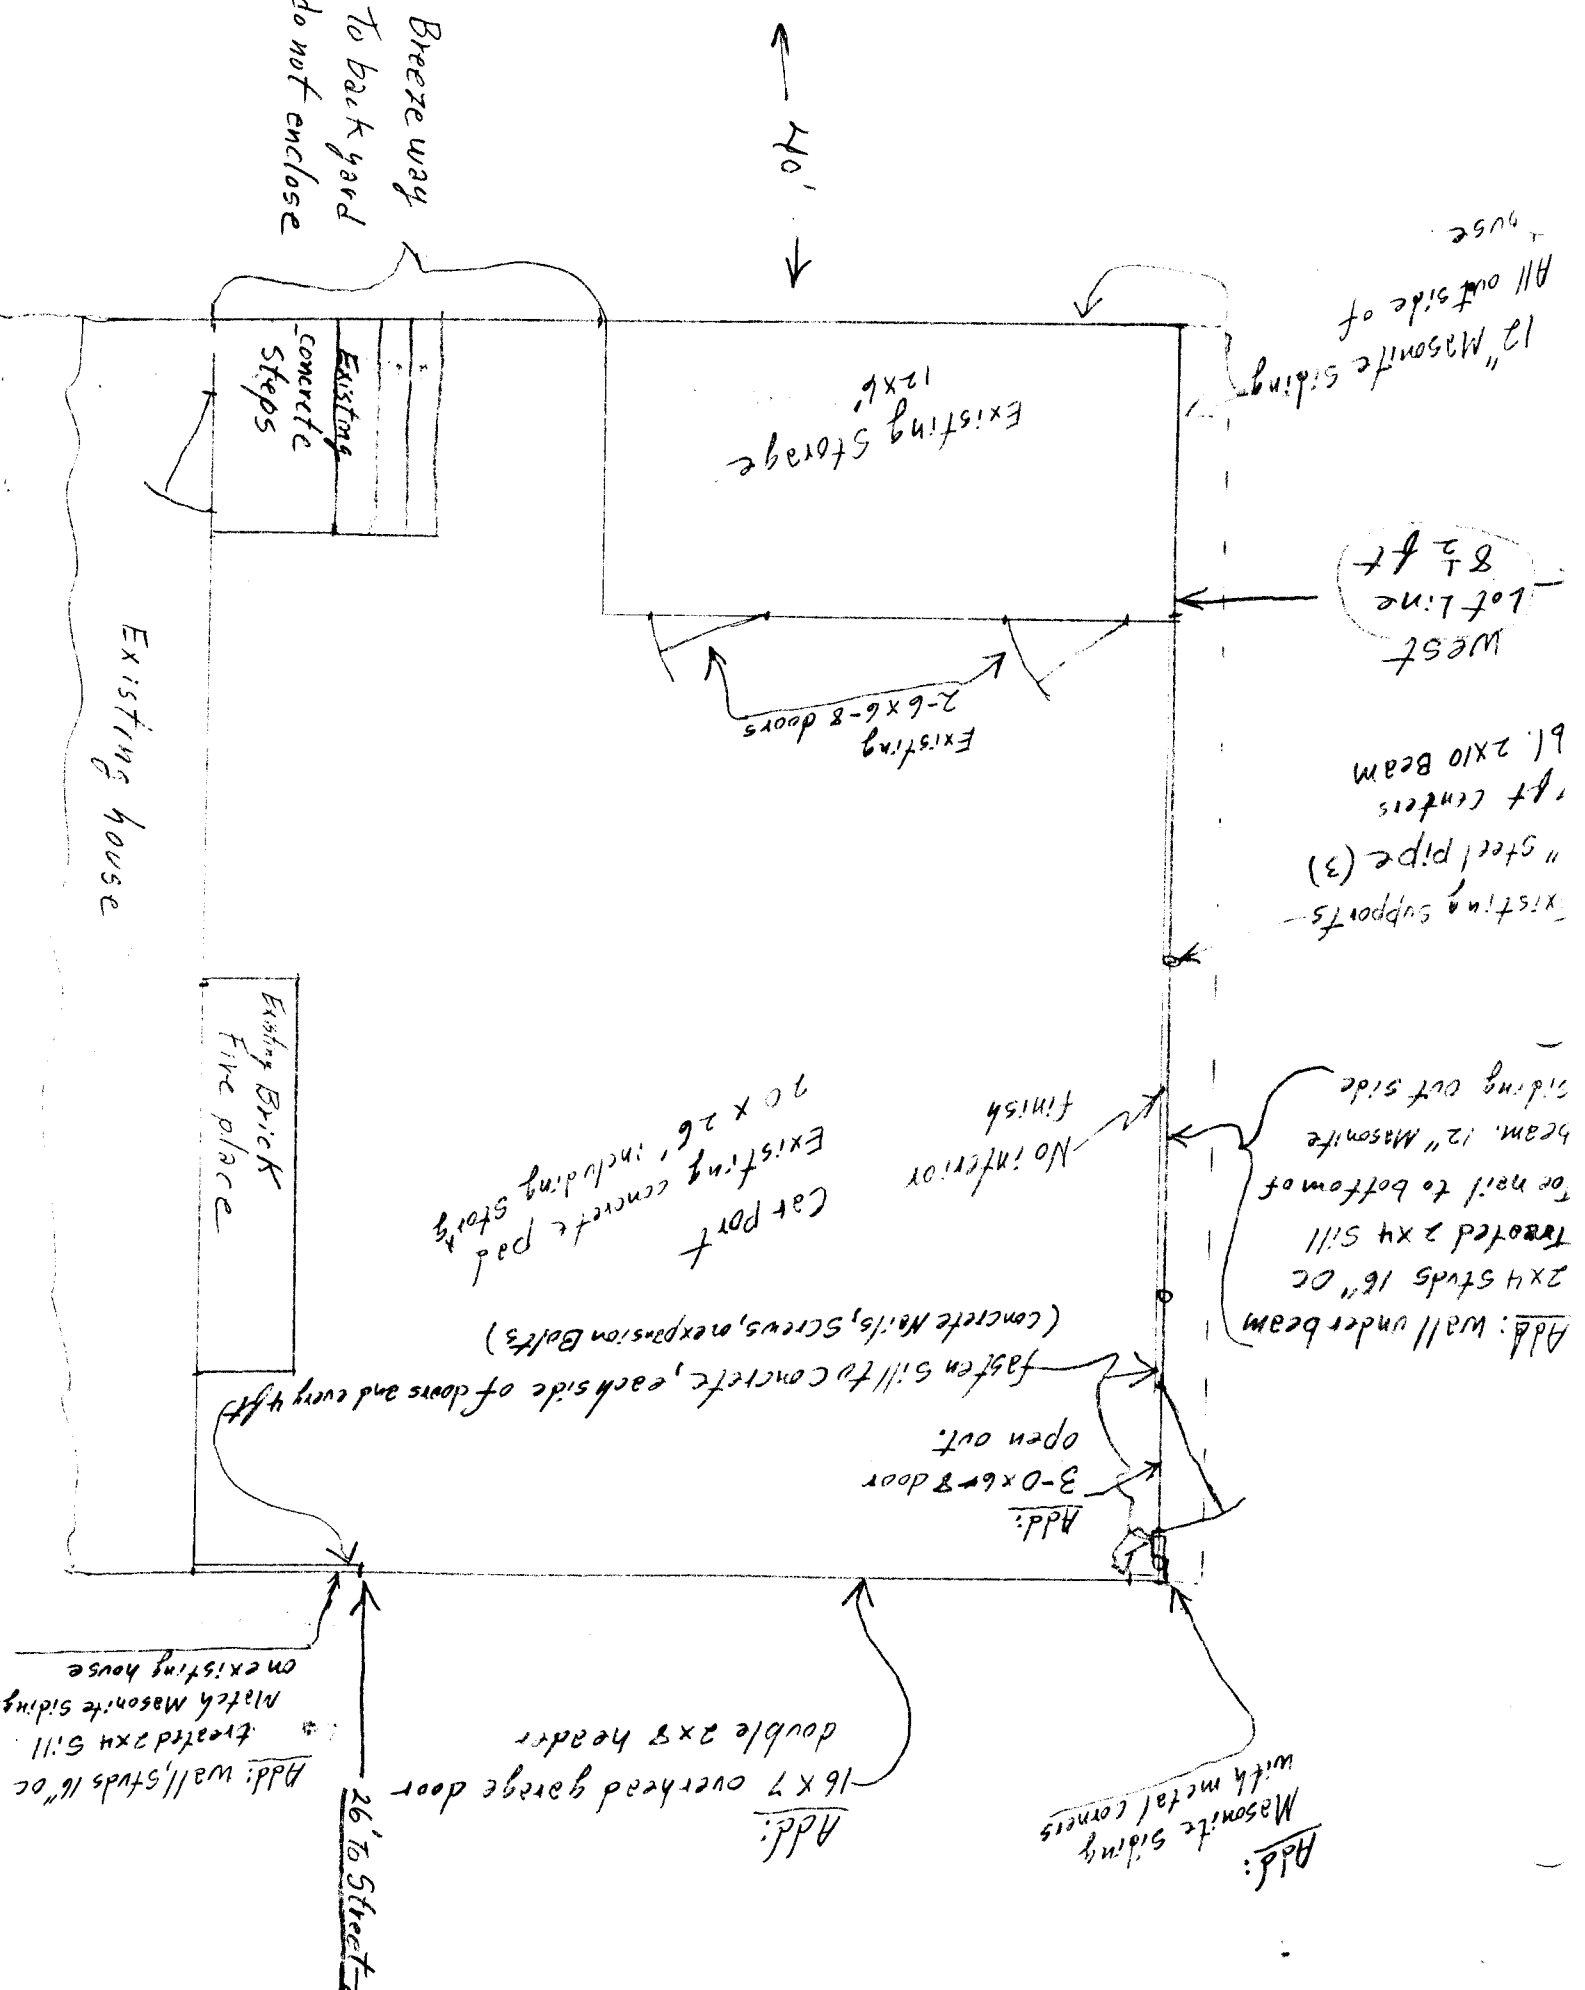 Breeze way
To back yard
do not enclose
40'
12" Masonite Siding
All out side of
Existing
concrete
Steps
Existing Storage
12x6'
West
Lot Line
8 1/2 ft
Existing
2-6 x 6-8 doors
supports
" steel pipe (3)
ft centers
2x10 Beam
Existing house
Existing Brick
Fire place
No interior
finish
Car port
Existing concrete pad
20 x 26' including storg
Add: wall under beam
2x4 studs 16" OC
Treated 2x4 Sill
Toe nail to bottom of
beam. 12" Masonite
Siding out side
fasten Sill to Concrete, each side of doors and every 4 ft
(concrete Nails, Screws, or expansion Bolts)
Add:
3-0 x 6-8 door
open out.
Add: wall, Studs 16" OC
treated 2x4 Sill
Match Masonite Siding
on existing house
26' To Street
Add:
16 x 7 overhead garage door
double 2x8 header
Add:
Masonite Siding
with metal corners